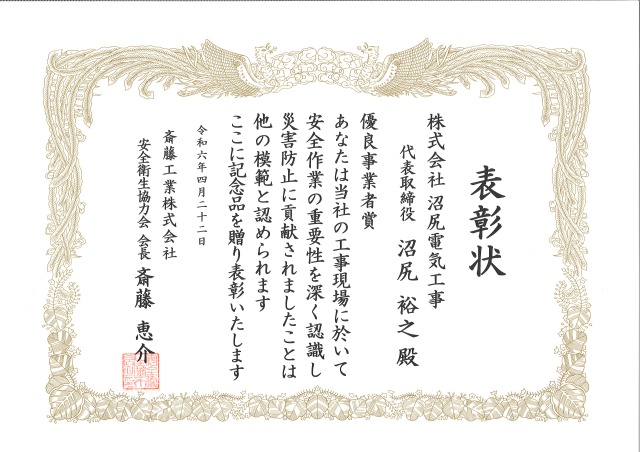 表彰状
株式会社 沼尻電気工事
代表取締役 沼尻 裕之 殿
優良事業者賞
あなたは当社の工事現場に於いて
安全作業の重要性を深く認識し
災害防止に貢献されましたことは
他の模範と認められます
ここに記念品を贈り表彰いたします
令和六年四月二十二日
斎藤工業株式会社
安全衛生協力会 会長 斎藤 恵介